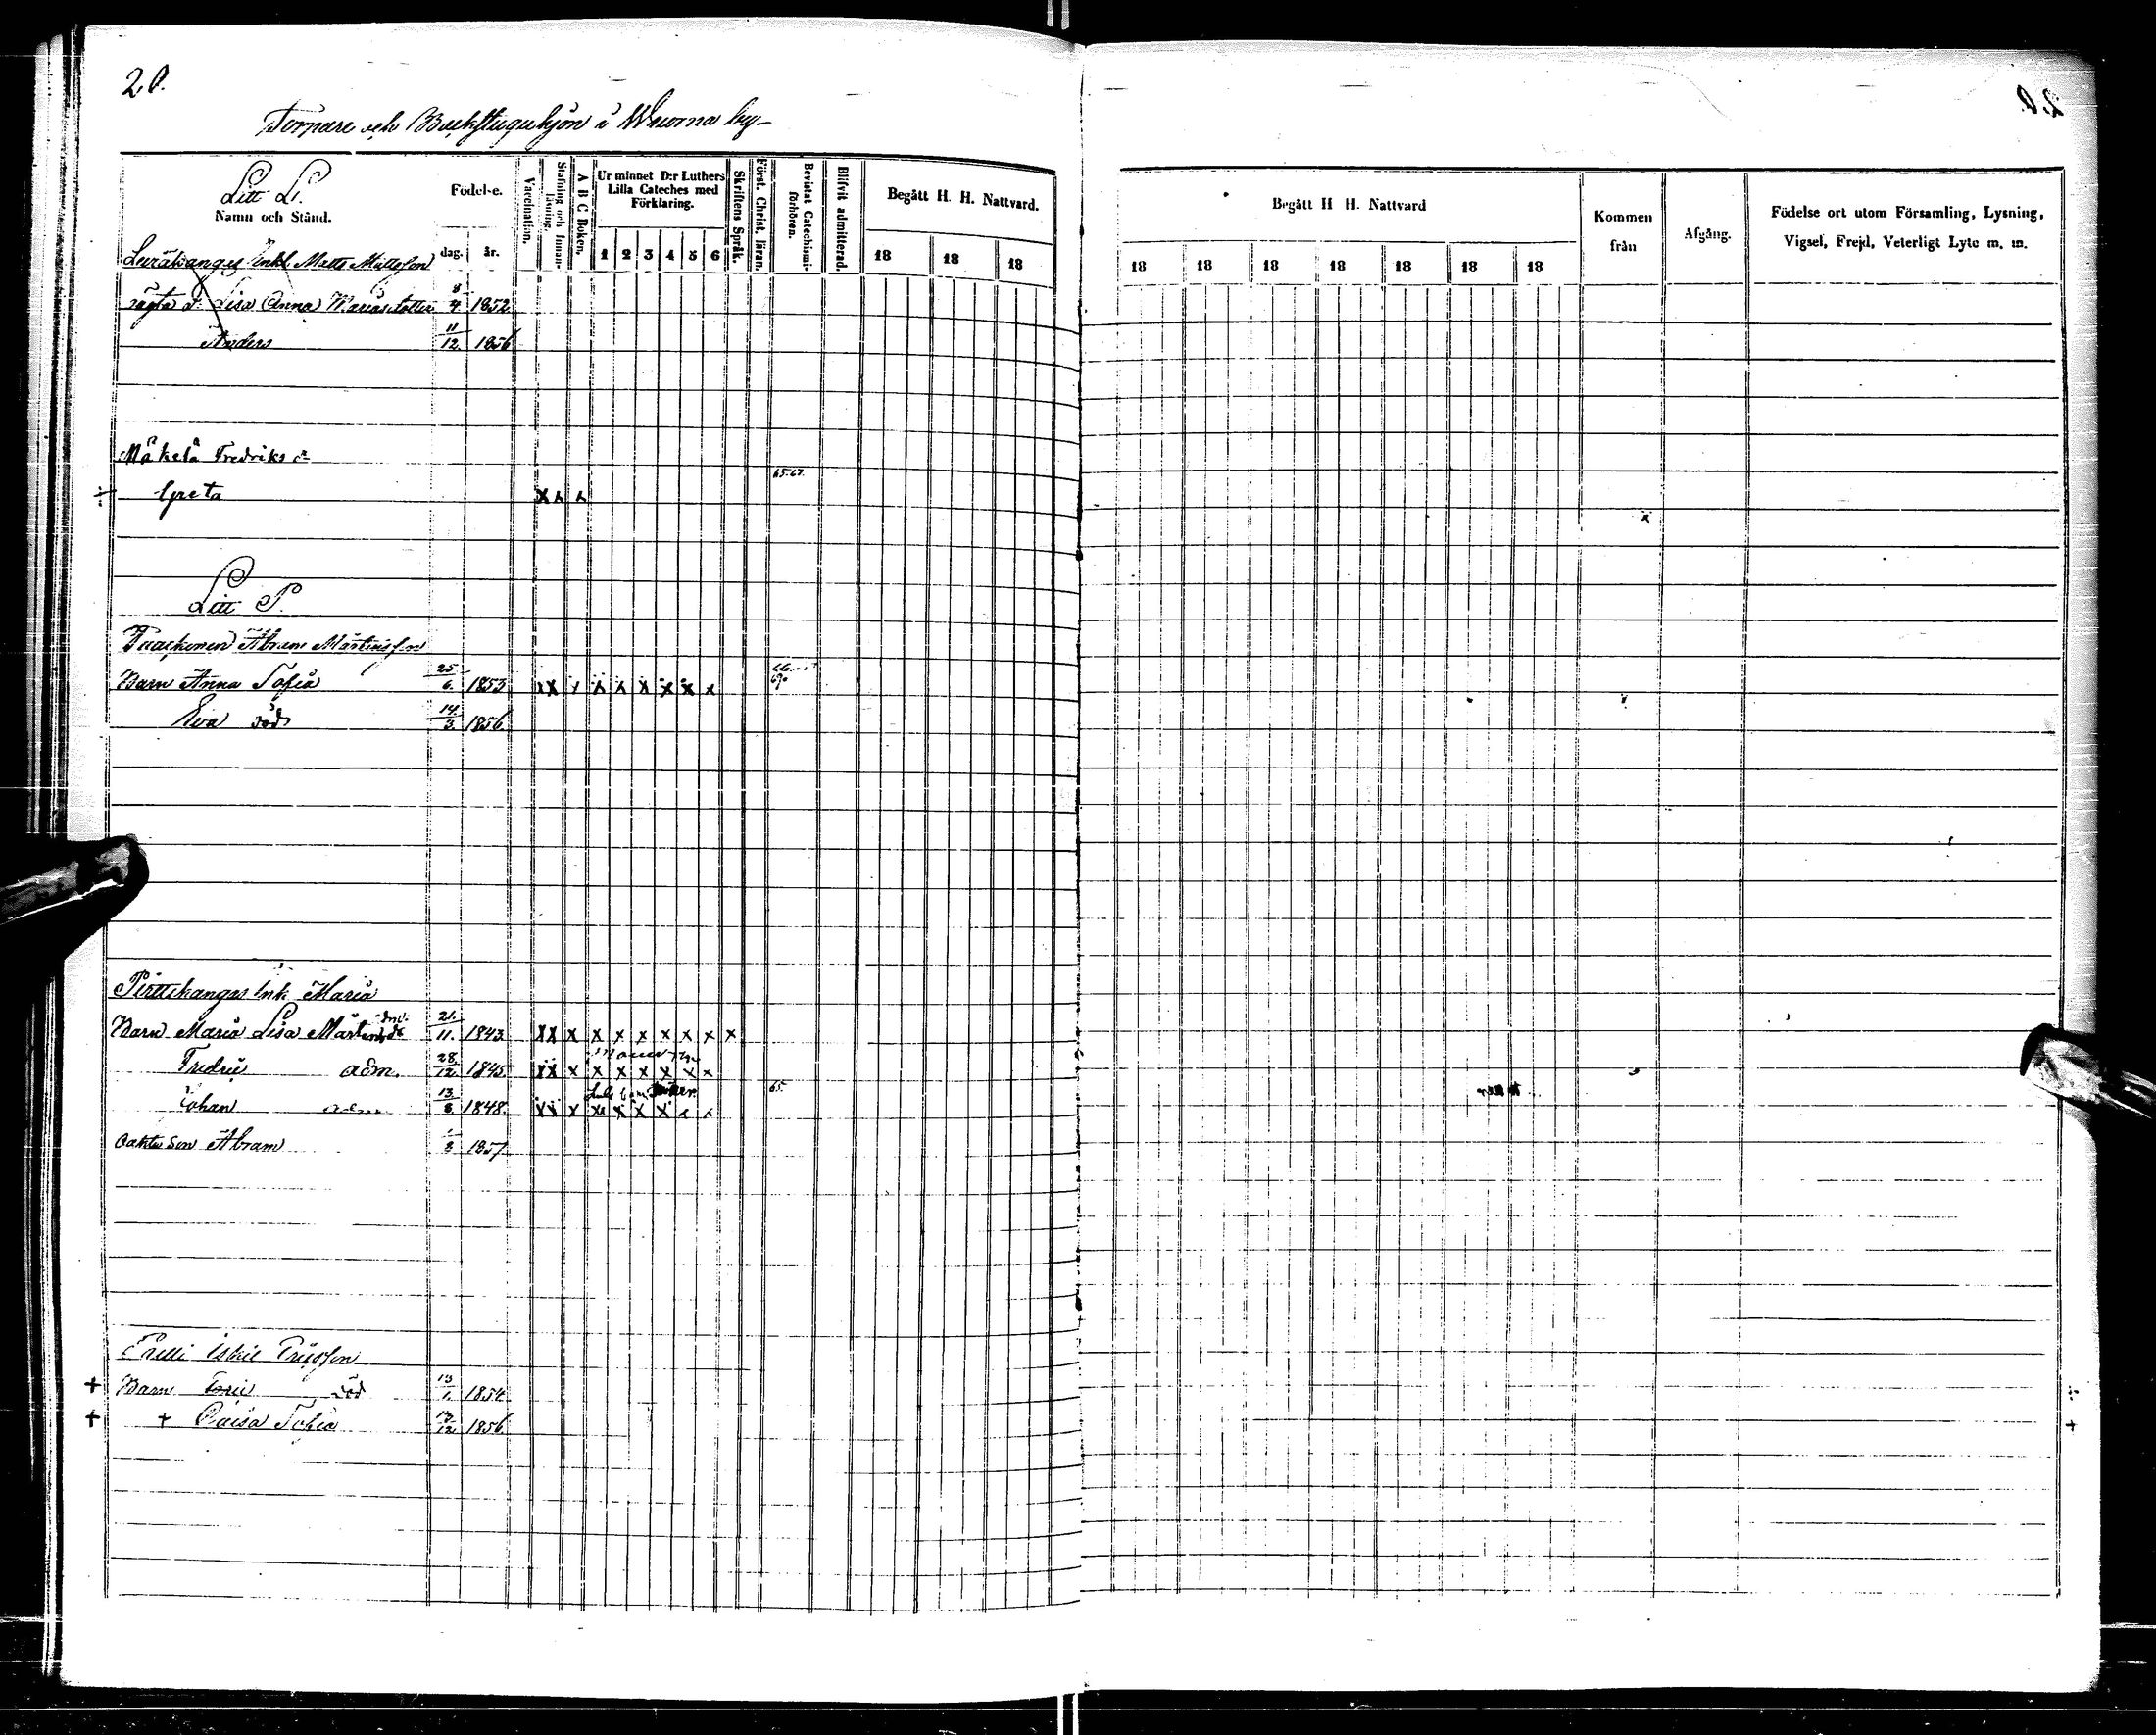 20.
Torpare och Backstuguhjon i by
Litt L.
Namn och Stånd.
Födelse.
dag. år.
Vaccination.
Stafning och Innanläsning.
A B C Boken.
Ur minnet D:r Luthers Lilla Cateches med Förklaring.
1 2 3 4 5 6
Skriftens Språk.
Först. Christ. läran.
Bevistat Catechismiförhören.
Blifvit admitterad.
Begått H. H. Nattvard.
18 18 18
Begått H H. Nattvard
18 18 18 18 18 18 18
Kommen från
Afgång.
Födelse ort utom Församling, Lysning, Vigsel, Frejd, Veterligt Lyte m. m.
Inh. Matts Mattsson
Lisa Anna Mariasdotter 4 1852
Anders 11/12. 1856
Mäkelä Fredriks
Greta x x x 65.67.
Litt P.
Abram Mårtensson
Barn Anna Sofia 25/6. 1853 x x x x x x x x x
Eva död 14/3. 1856.
Pirttikangas Inh. Maria
Barn Maria Lisa Mårtensdr 21./11. 1843 x x x x x x x x x x
Fredric adm. 28/12 1845 x x x x x x x x x
Johan 13/8 1848. x x x x x x x x x 65.
son Abram 8 1857
Iskil
+ Barn död 13/1. 1854
+ + Caisa Sofia 13/12 1856